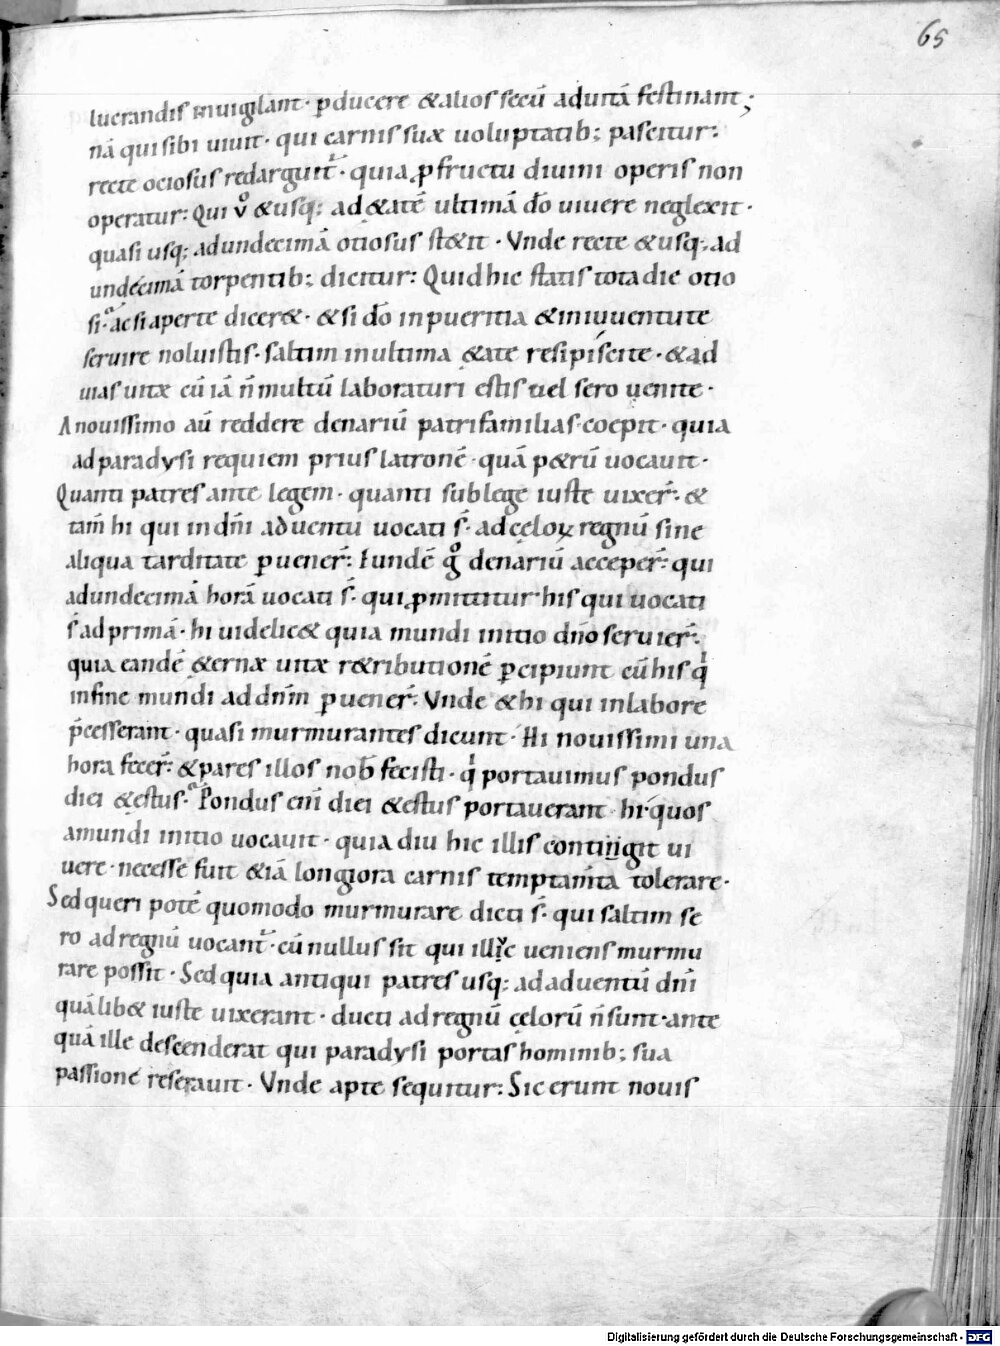 65
lucrandis inuigilant· ꝑducere &alios secū aduitā festinant;
nā qui sibi uiuit· qui carnis suæ uoluptatib; pascitur:
recte ociosus redarguit᷑· quia ꝓfructu diuini operis non
operatur: Qui v̊ &usq; ad&atē ultimā do̅ uiuere neglexit·
quasi usq; adundecimā otiosus st&it· Vnde recte &usq; ad
undecimā torpentib; dicitur: Quid hic statis tota die otio
si· ac si aperte dicer&· &si do̅ inpueritia &iniuuentute
seruire noluistis· saltim inultima &ate resipiscite· &ad
uias uitæ cū iā n̄ multū laboraturi estis uel sero uenite·
A nouissimo aū reddere denariū patrifamilias coepit· quia
ad paradysi requiem prius latronē· quā p&rū uocauit·
Quanti patres ante legem· quanti sub lege iuste uixer̄: &
tam̄ hi qui in dn̄i aduentu uocati s̄· ad cęloꝝ regnū sine
aliqua tarditate ꝑuener̄: Eundē g̊ denariū acceper̄: qui
adundecimā horā uocati s̄· qui ꝓmittitur his qui uocati
s̄ ad primā· hi uidelic& quia mundi initio dn̄o seruier̄:
quia eandē &ernæ uitæ r&ributionē ꝑcipiunt cū his qͥ
infine mundi ad dn̄m ꝑuener̄: Vnde &hi qui inlabore
p̄cesserant· quasi murmurantes dicunt· Hi nouissimi una
hora fecer̄: &pares illos nob̄ fecisti· qͥ portauimus pondus
diei &ęstus· Pondus eni̅ diei &ęstus portauerant hi· quos
amundi initio uocauit· quia diu hic illis contingit ui
uere· necesse fuit &iā longiora carnis temptam̅ta tolerare·
Sed queri potē quomodo murmurare dicti s̄· qui saltim se
ro ad regnū uocant᷑· cū nullus sit qui illic ueniens murmu
rare possit· Sed quia antiqui patres usq; adaduentū dn̄i
quālib& iuste uixerant· ducti ad regnū cęlorū n̄ sunt· ante
quā ille descenderat qui paradysi portas hominib; sua
passione reserauit· Vnde apte sequitur: Sic erunt nouis
Digitalisierung gefördert durch die Deutsche Forschungsgemeinschaft · DFG